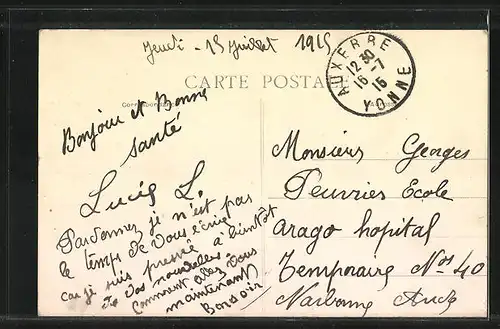 Jeudi - 15 Juillet 1915
CARTE POSTALE
Correspondance
AUXERRE
12 30
16 - 7
15
YONNE
Bonjour et Bonne
santé
Lucie L.
Pardonnez je n'est pas
le temps de vous écrire
car je suis pressé à bientôt
de vos nouvelles
Comment allez vous
maintenant
Bonsoir
Monsieur Georges
Peuvries Ecole
arago hopital
temporaire Nos 40
Narbonne Aude